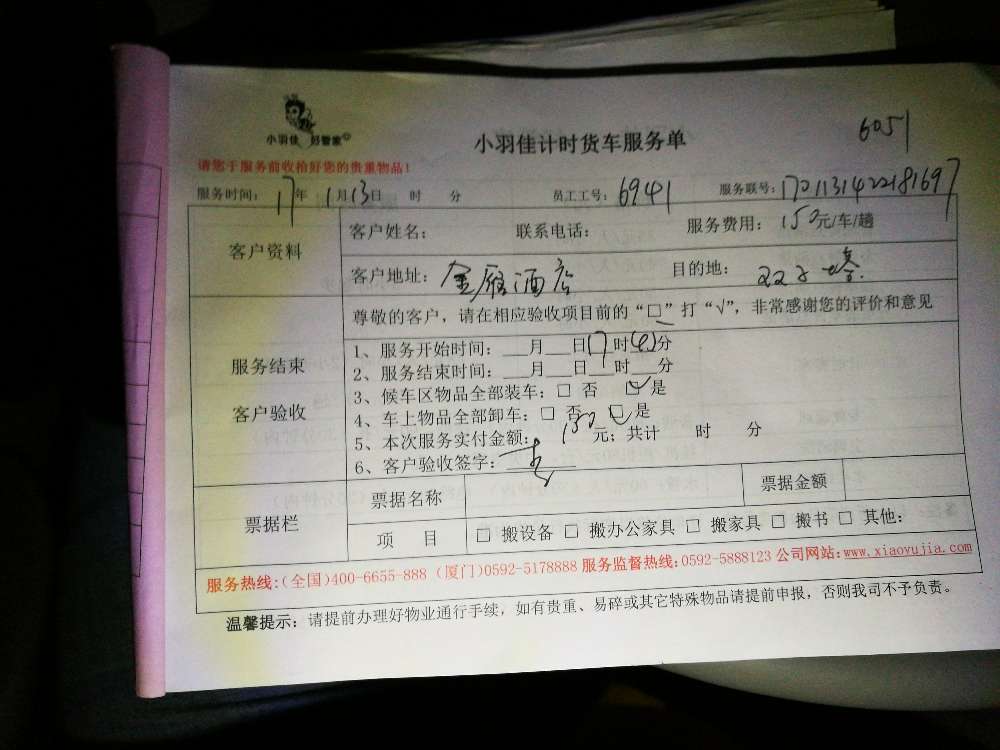 小羽佳 好管家
小羽佳计时货车服务单
6051
请您于服务前收拾好您的贵重物品！
服务时间： 17年 1月13日 时 分 员工工号：6941 服务联号：1701131422181697
客户资料
客户姓名： 联系电话： 服务费用：150元/车/趟
客户地址：金雁酒店 目的地：双子塔
尊敬的客户，请在相应验收项目前的“□”打“√”，非常感谢您的评价和意见
服务结束
客户验收
1、服务开始时间：___月___日17时40分
2、服务结束时间：___月___日___时___分
3、候车区物品全部装车：□ 否 ☑ 是
4、车上物品全部卸车：□ 否 ☑ 是
5、本次服务实付金额：150元；共计 时 分
6、客户验收签字：
票据栏
票据名称 票据金额
项 目 □ 搬设备 □ 搬办公家具 □ 搬家具 □ 搬书 □ 其他：
服务热线：(全国)400-6655-888 (厦门)0592-5178888 服务监督热线：0592-5888123 公司网站：www.xiaoyujia.com
温馨提示：请提前办理好物业通行手续，如有贵重、易碎或其它特殊物品请提前申报，否则我司不予负责。